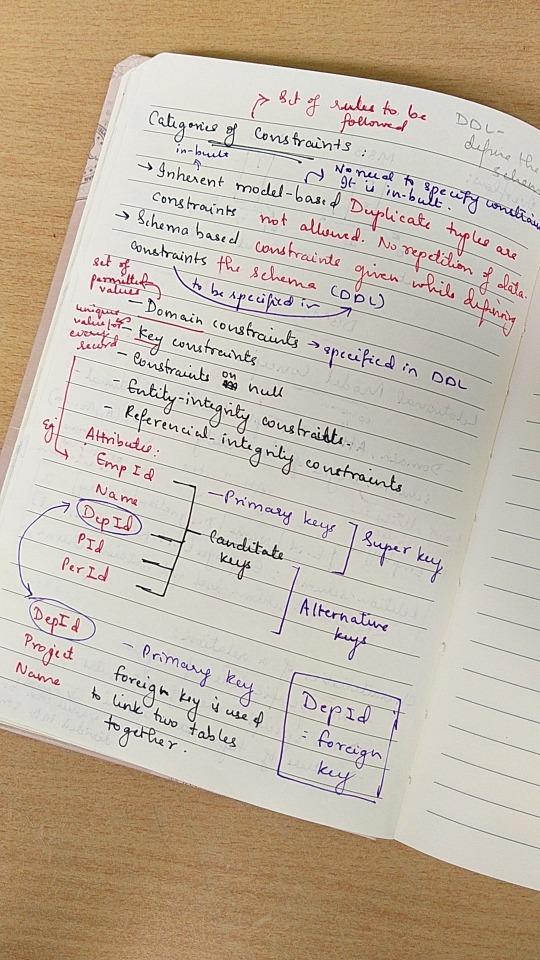 set of rules to be
followed
DDL-
define the
schema
Categories of Constraints :
in-built
No need to specify constrain
It is in-built.
→ Inherent model-based Duplicate tuples are
constraints not allowed. No repetition of data.
→ Schema based constraints given while defining
constraints the schema (DDL)
to be specified in
set of
permitted
values
- Domain constraints → specified in DDL
unique
value for
every
record
- Key constraints
- Constraints on null
- Entity-integrity constraints.
- Referencial-integrity constraints
Eg
Attributes:
Emp Id
Name
DepId
PId
PerId
- Primary keys
Super key
Canditate
keys
Alternative
keys
DepId
Project
Name
- Primary key
foreign key is used
to link two tables
together.
DepId
= foreign
key